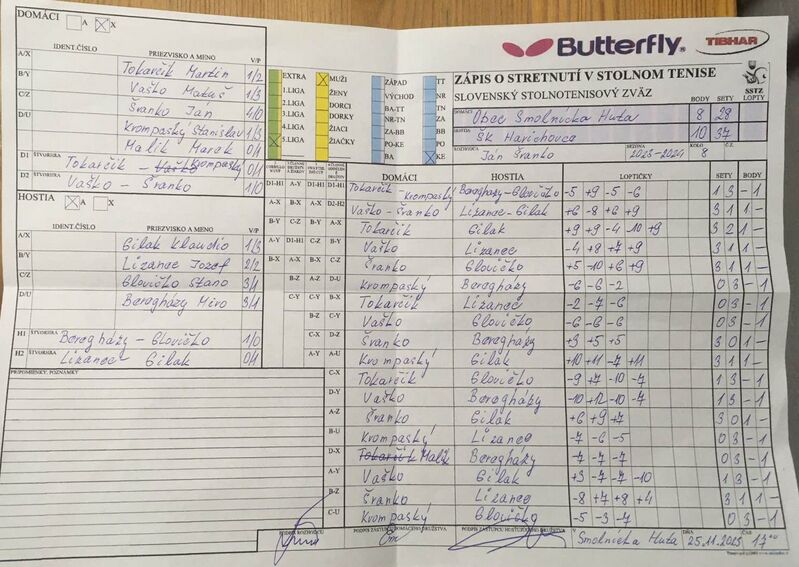 DOMÁCI A X
IDENT.ČÍSLO PRIEZVISKO A MENO V/P
A/X Tokarčík Martin 1/2
B/Y Vaško Matúš 1/3
C/Z Šranko Ján 4/0
D/U Krompaský Stanislav 1/3
Malik Marek 0/1
D1 ŠTVORHRA Tokarčík - Vaško Krompaský 0/1
D2 ŠTVORHRA Vaško - Šranko 1/0
HOSTIA X A X
IDENT.ČÍSLO PRIEZVISKO A MENO V/P
A/X Gilak Klaudio 1/3
B/Y Lizanec Jozef 2/2
C/Z Glovičko Stano 3/1
D/U Beregházy Miro 3/1
H1 ŠTVORHRA Beregházy - Glovičko 1/0
H2 ŠTVORHRA Lizanec Gilak 0/1
PRIPOMIENKY, POZNÁMKY
EXTRA
1.LIGA
2.LIGA
3.LIGA
4.LIGA
5.LIGA
MUŽI
ŽENY
DORCI
DORKY
ŽIACI
ŽIAČKY
ZÁPAD
VÝCHOD
BA-TT
NR-TN
ZA-BB
PO-KE
BA
TT
NR
TN
ZA
BB
PO
KE
Butterfly
TIBHAR
ZÁPIS O STRETNUTÍ V STOLNOM TENISE
SLOVENSKÝ STOLNOTENISOVÝ ZVÄZ
SSTZ
BODY SETY LOPTY
DOMÁCI Obec Smolnícka Huta 8 29
HOSTIA ŠK Harichovce 10 37
ROZHODCA Ján Šranko SEZÓNA 2023-2024 KOLO 8 Č.
DOMÁCI HOSTIA LOPTIČKY SETY BODY
D1-H1 A-Y D1-H1 D1-H1 Tokarčík - Krompaský Beregházy - Glovičko -5 +9 -5 -6 1 3 - 1
A-X B-X A-X D2-H2 Vaško - Šranko Lizanec - Gilak +6 -8 +6 +9 3 1 1 -
B-Y C-Z B-Y A-X Tokarčík Gilak +9 +9 -4 -10 +9 3 2 1 -
A-Y D1-H1 C-Z B-Y Vaško Lizanec -4 +8 +7 +9 3 1 1 -
B-X A-X B-X C-Z Šranko Glovičko +5 -10 +6 +9 3 1 1 -
B-Z A-Z D-U Krompaský Beregházy -6 -6 -2 0 3 - 1
C-Y C-Y B-X Tokarčík Lizanec -2 -7 -6 0 3 - 1
B-Z C-Y Vaško Glovičko -6 -6 -6 0 3 - 1
C-X D-Z Šranko Beregházy +3 +5 +5 3 0 1 -
A-Y A-U Krompaský Gilak +10 +11 -7 +11 3 1 1 -
C-X Tokarčík Glovičko -9 +7 -10 -7 1 3 - 1
D-Y Vaško Beregházy -10 +12 -10 -7 1 3 - 1
A-Z Šranko Gilak +6 +9 +7 3 0 1 -
B-U Krompaský Lizanec -7 -6 -5 0 3 - 1
D-X Tokarčík Malik Beregházy -7 -7 -7 0 3 - 1
A-Y Vaško Gilak +3 -7 -7 -10 1 3 - 1
B-Z Šranko Lizanec -8 +7 +8 +4 3 1 1 -
C-U Krompaský Glovičko -5 -3 -7 0 3 - 1
PODPIS ROZHODCU PODPIS ZÁSTUPCU DOMÁCEHO DRUŽSTVA PODPIS ZÁSTUPCU HOSŤUJÚCEHO DRUŽSTVA Smolnícka Huta DŇA 25.11.2023 ČAS 17:00